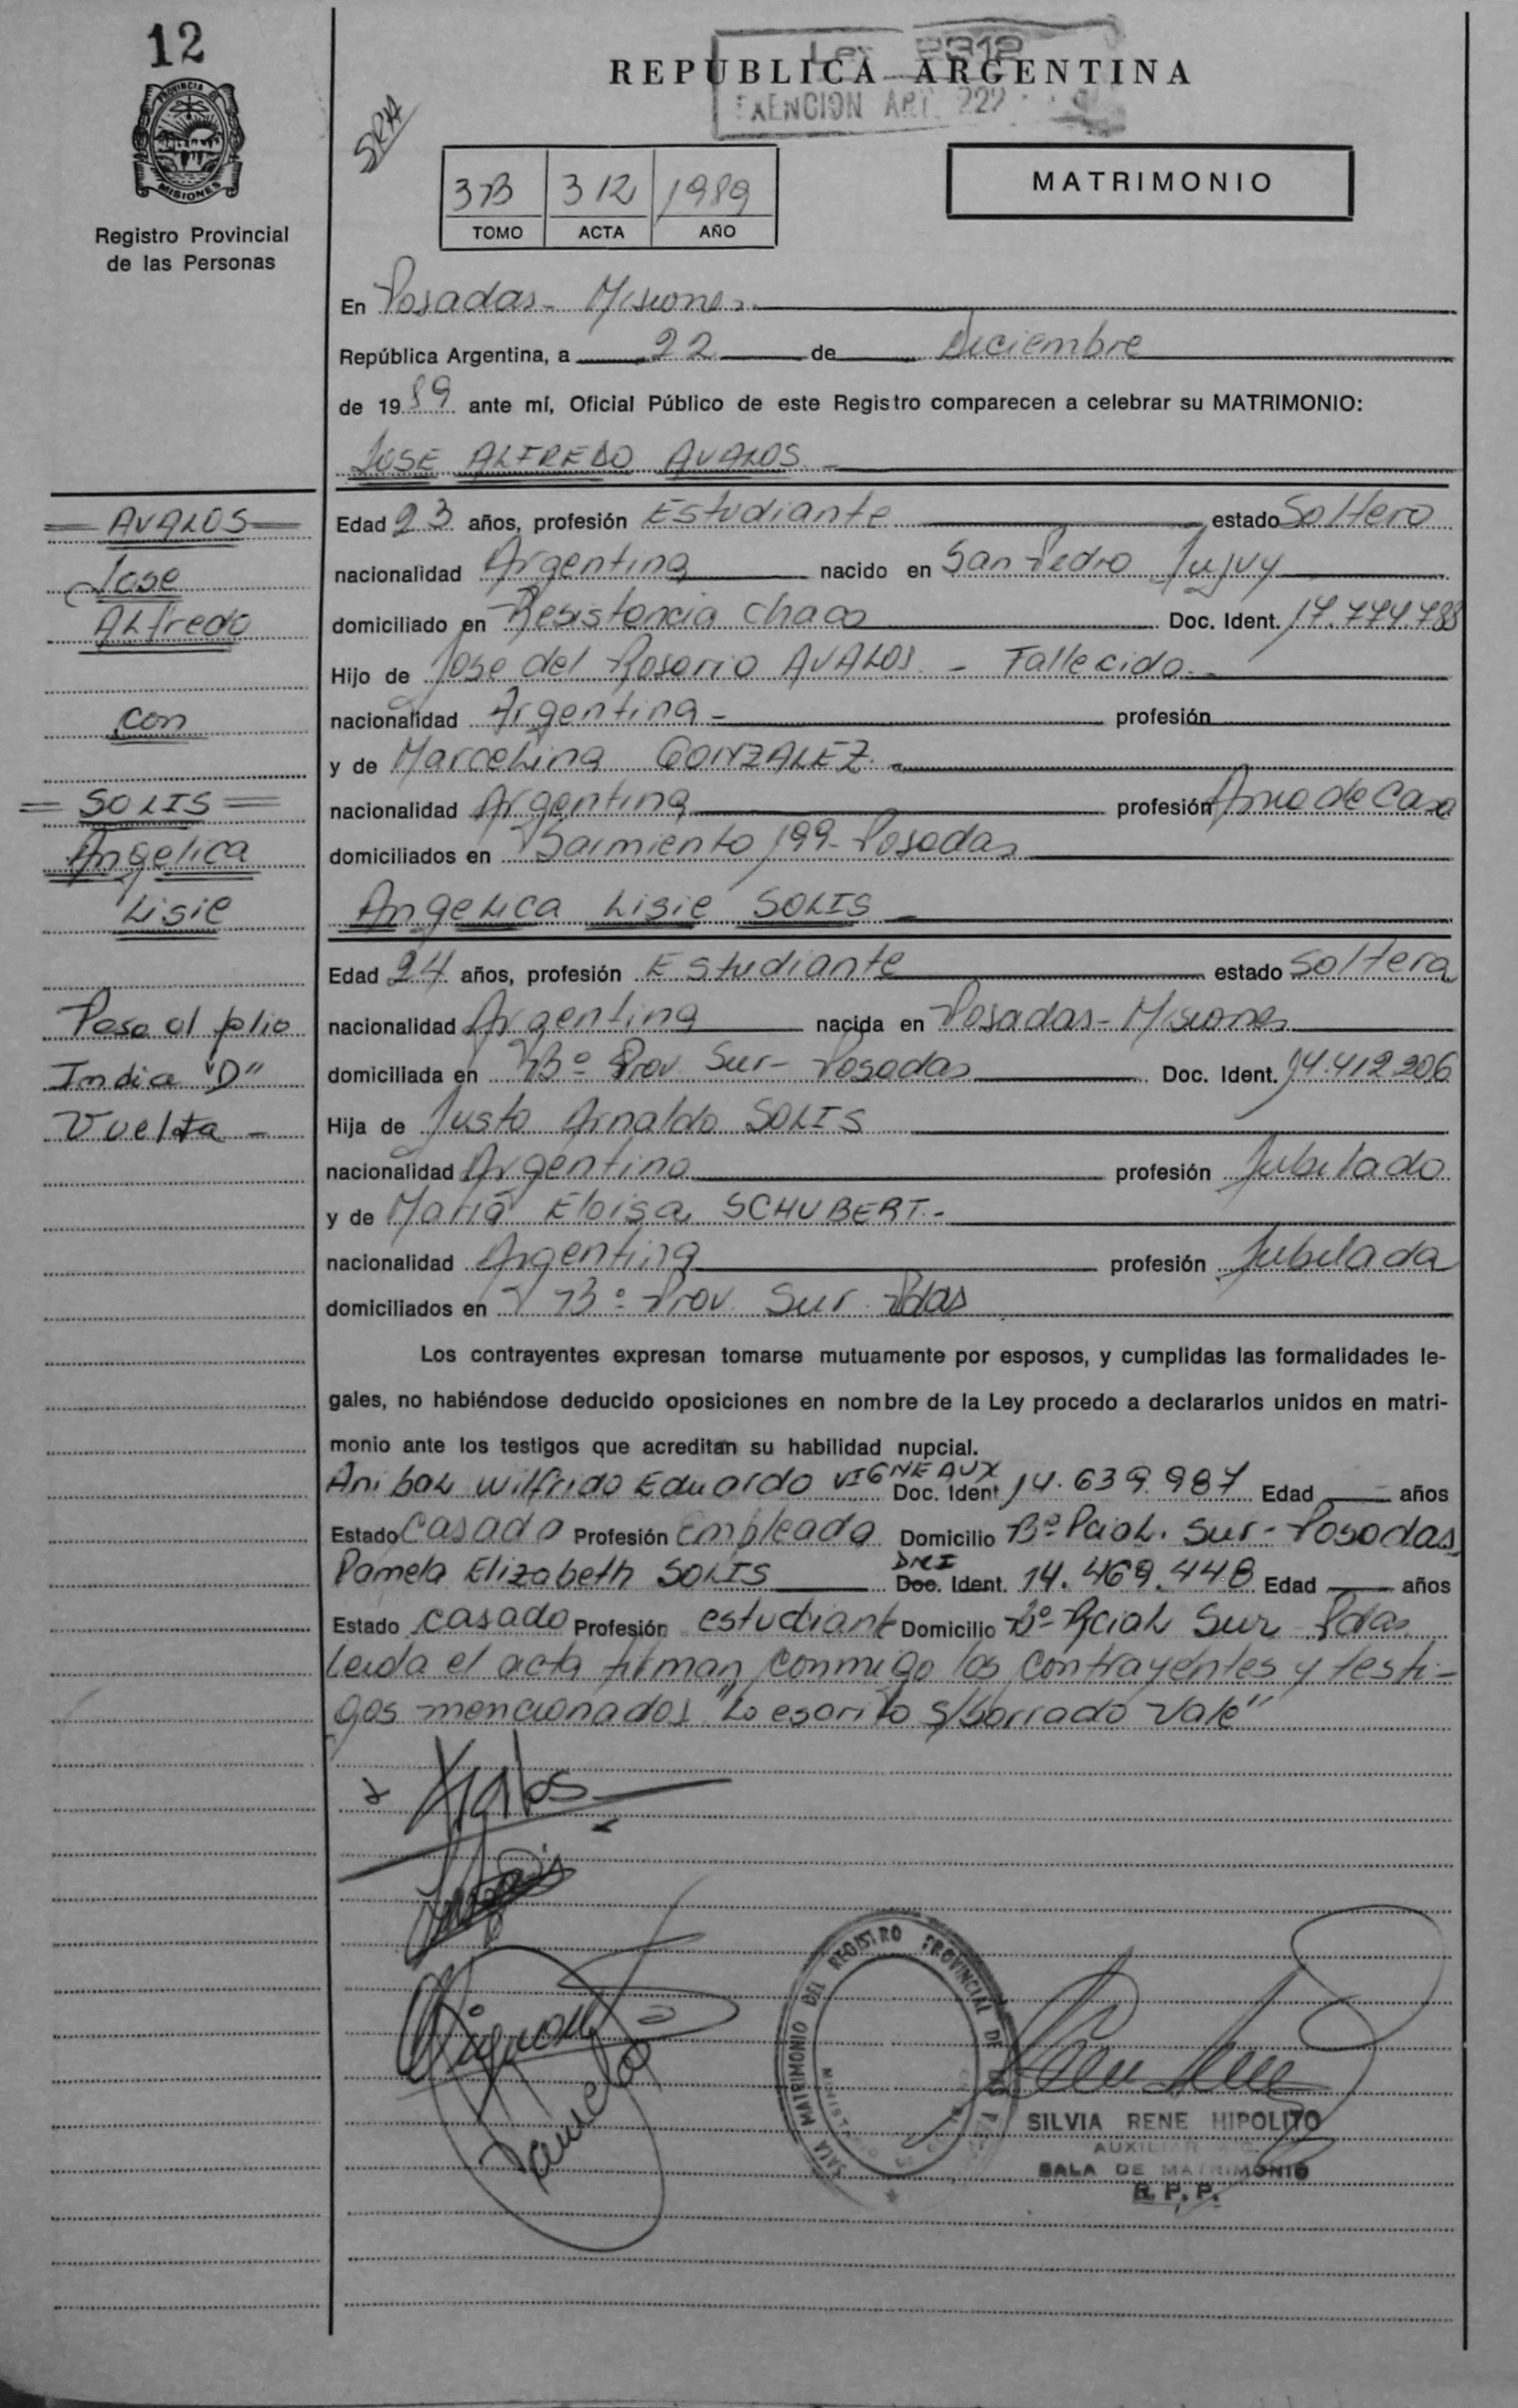 12
PROVINCIA DE
MISIONES
Registro Provincial
de las Personas
SRH
Ley 2312
EXENCION ART. 222
REPUBLICA ARGENTINA
MATRIMONIO
3B 312 1989
TOMO ACTA AÑO
En Posadas - Misiones.
República Argentina, a 22 de Diciembre
de 1989 ante mí, Oficial Público de este Registro comparecen a celebrar su MATRIMONIO:
JOSE ALFREDO AVALOS -
Edad 23 años, profesión Estudiante estado Soltero
nacionalidad Argentina nacido en San Pedro Jujuy
domiciliado en Resistencia Chaco Doc. Ident. 17.774.788
Hijo de Jose del Rosario AVALOS - Fallecido.-
nacionalidad Argentina - profesión
y de Marcelina GONZALEZ.-
nacionalidad Argentina profesión Ama de Casa
domiciliados en Sarmiento 199 - Posadas
Angelica Lisie SOLIS -
Edad 24 años, profesión Estudiante estado Soltera
nacionalidad Argentina nacida en Posadas - Misiones
domiciliada en Bº Prov Sur - Posadas Doc. Ident. 14.412206
Hija de Justo Arnaldo SOLIS
nacionalidad Argentino profesión Jubilado
y de Maria Eloisa SCHUBERT.-
nacionalidad Argentina profesión Jubilada
domiciliados en Bº Prov. Sur Pdas
Los contrayentes expresan tomarse mutuamente por esposos, y cumplidas las formalidades le-
gales, no habiéndose deducido oposiciones en nombre de la Ley procedo a declararlos unidos en matri-
monio ante los testigos que acreditan su habilidad nupcial.
Anibal Wilfrido Eduardo VIGNEAUX Doc. Ident 14.639.987 Edad años
Estado Casado Profesión Empleado Domicilio Bº Pcial. Sur - Posadas
Pamela Elizabeth SOLIS DNI Doc. Ident. 14.469.448 Edad años
Estado casado Profesión estudiant Domicilio Bº Pcial Sur Pdas
Leida el acta firman conmigo los contrayentes y testi-
gos mencionados "Lo escrito s/borrado vale"
AVALOS
Jose
Alfredo
con
SOLIS
Angelica
Lisie
Pasa al folio
Indice "D"
Vuelta -
Avalos
Pamela
SALA MATRIMONIO DEL REGISTRO PROVINCIAL DE LAS
SILVIA RENE HIPOLITO
AUXILIAR
SALA DE MATRIMONIO
R. P. P.